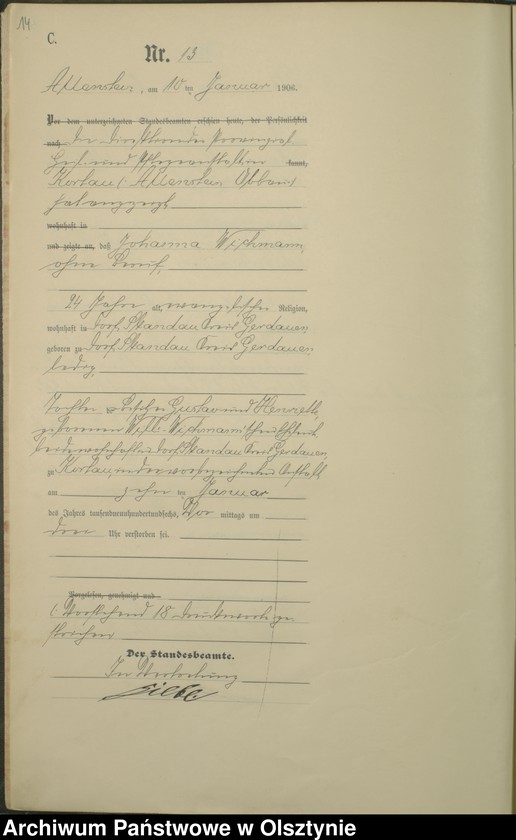 14
C.
Nr. 13
Allenstein, am 10ten Januar 1906.
Vor dem unterzeichneten Standesbeamten erschien heute, der Persönlichkeit
nach die Direktion der Provinzial
Heil- und Pflegeanstalten kannt,
Kortau b. Allenstein
hat angezeigt
wohnhaft in
und zeigte an, daß Johanna Wichmann,
ohne Beruf,
24 Jahre alt, evangelischer Religion,
wohnhaft in Dorf Skandau Kreis Gerdauen
geboren zu Dorf Skandau Kreis Gerdauen,
ledig,
Tochter Gustav und Henriette,
geborenen Wichmannschen Eheleute,
beide wohnhaft in Dorf Skandau Kreis Gerdauen,
zu Kortau, in der vorbezeichneten Anstalt,
am zehnten Januar
des Jahres tausendneunhundertundsechs, Vor mittags um
drei Uhr verstorben sei.
Vorgelesen, genehmigt und
(Vorstehend 18 Druckworte ge-
strichen
Der Standesbeamte.
In Vertretung
Archiwum Państwowe w Olsztynie